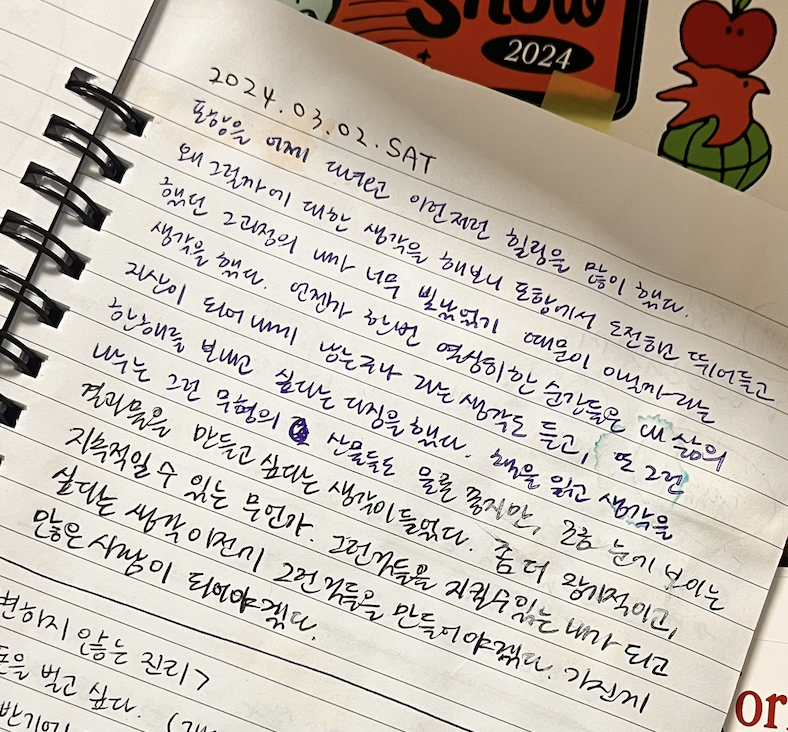 Show
2024
2024.03.02.SAT
포항을 어제 다녀오고 이런저런 힐링을 많이 했다.
왜 그럴까에 대한 생각을 해보니 포항에서 도전하고 뛰어들고
했던 그 과정의 내가 너무 빛났었기 때문이 아닐까라는
생각을 했다. 언젠가 한번 열심히 한 순간들은 내 삶의
자산이 되어 내게 남는구나 라는 생각도 들고, 또 그런
한해를 보내고 싶다는 다짐을 했다. 책을 읽고 생각을
나누는 그런 무형의 산물들도 물론 좋지만, 조금 눈에 보이는
결과물을 만들고 싶다는 생각이 들었다. 좀 더 장기적이고,
지속적일 수 있는 무언가. 그런 것들을 지킬 수 있는 내가 되고
싶다는 생각 이전에 그런 것들을 만들어야겠다. 가진게
많은 사람이 되어야겠다.
변하지 않는 진리?
돈을 벌고 싶다.
or